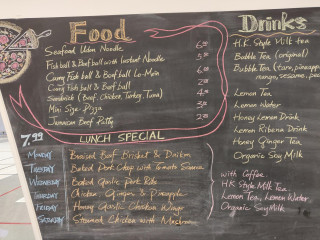 Food
Seafood Udon Noodle
Fish ball & Beef ball with Instant Noodle
Curry Fish ball & Beef ball Lo-Mein
Curry Fish ball & Beef ball
Sandwich (Beef, Chicken, Turkey, Tuna)
Mini Size Pizza
Jamaican Beef Patty
7.99
LUNCH SPECIAL
MONDAY Braised Beef Brisket & Daikon
TUESDAY Baked Pork Chop with Tomato Sauce
WEDNESDAY Baked Garlic Pork Ribs
THURSDAY Chicken Ginger & Pineapple
FRIDAY Honey Garlic Chicken Wings
SATURDAY Steamed Chicken with Mushroom
Drinks
H.K. Style Milk tea
Bubble Tea (original)
Bubble Tea (taro, pineapple
mango, sesame,
Lemon Tea
Lemon Water
Honey Lemon Drink
Lemon Ribena Drink
Honey Ginger Tea
Organic Soy Milk
with Coffee
HK Style Milk Tea
Lemon Tea, Lemon Water
Organic Soy Milk